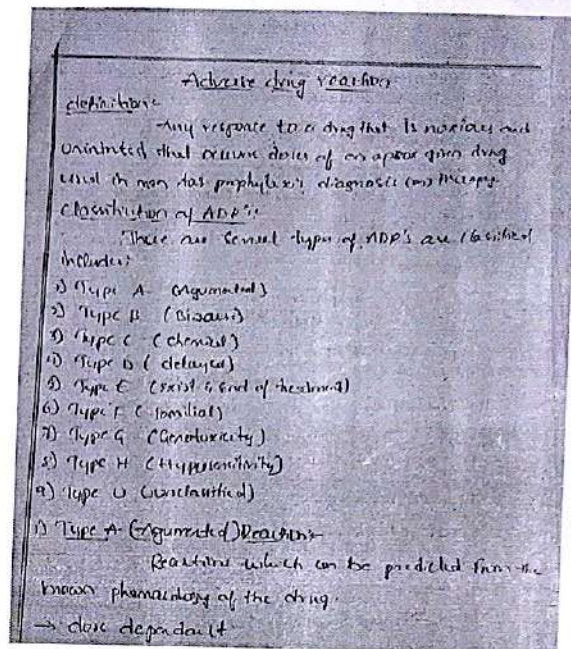 Adverse drug reaction
definition:-
Any response to a drug that is noxious and
unintented that occurs doses of an given drug
used in man prophylexis diagnosis (or) therapy
Classification of ADR's:
There are several types of ADR's are classified
includes:
1) Type A (Agumented)
2) Type B (Bizaure)
3) Type C (chemical)
4) Type D (delayed)
5) Type E (exist & end of treatment)
6) Type F (familial)
7) Type G (Genotoxicity)
8) Type H (Hypersensitivity)
9) Type U (unclassified)
1) Type A (Agumented) Reaction:-
Reactions which can be predicted from the
known pharmacology of the drug.
→ dose dependault